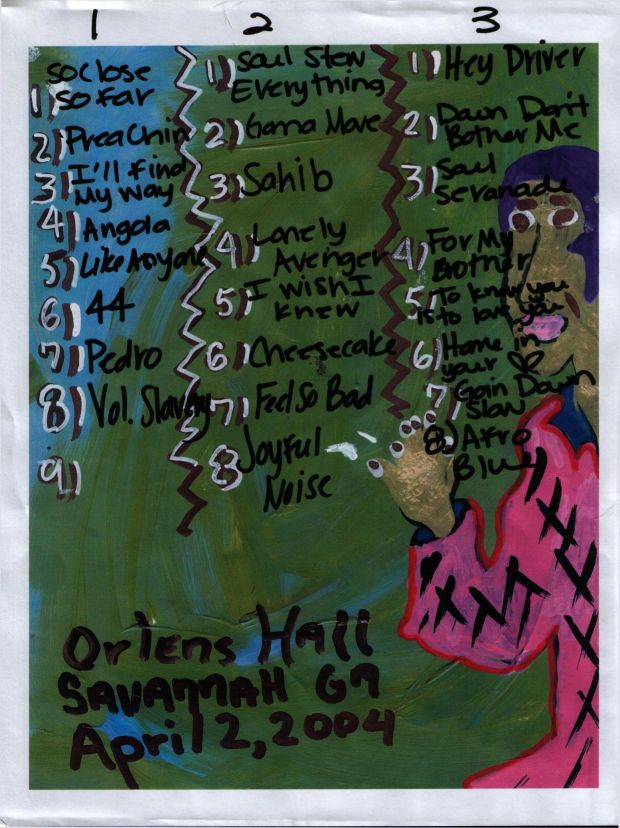 1
So close
1) So far
2) Preachin
3) I'll find
My Way
4) Angola
5) Like Anyone
6) 44
7) Pedro
8) Vol. Slavery
9)
2
1) Soul Stew
Everything
2) Gonna Move
3) Sahib
4) Lonely
Avenger
5) I wish I
knew
6) Cheesecake
7) Feel So Bad
8 Joyful
Noise
3
1) Hey Driver
2) Dawn Don't
Bother Me
3) Soul
Seranade
4) For My
Brother
5) To know you
is to love you
6) Home in
your
7) Goin Down
Slow
8) Afro
Blue
Orlens Hall
SAVANNAH GA
April 2, 2004